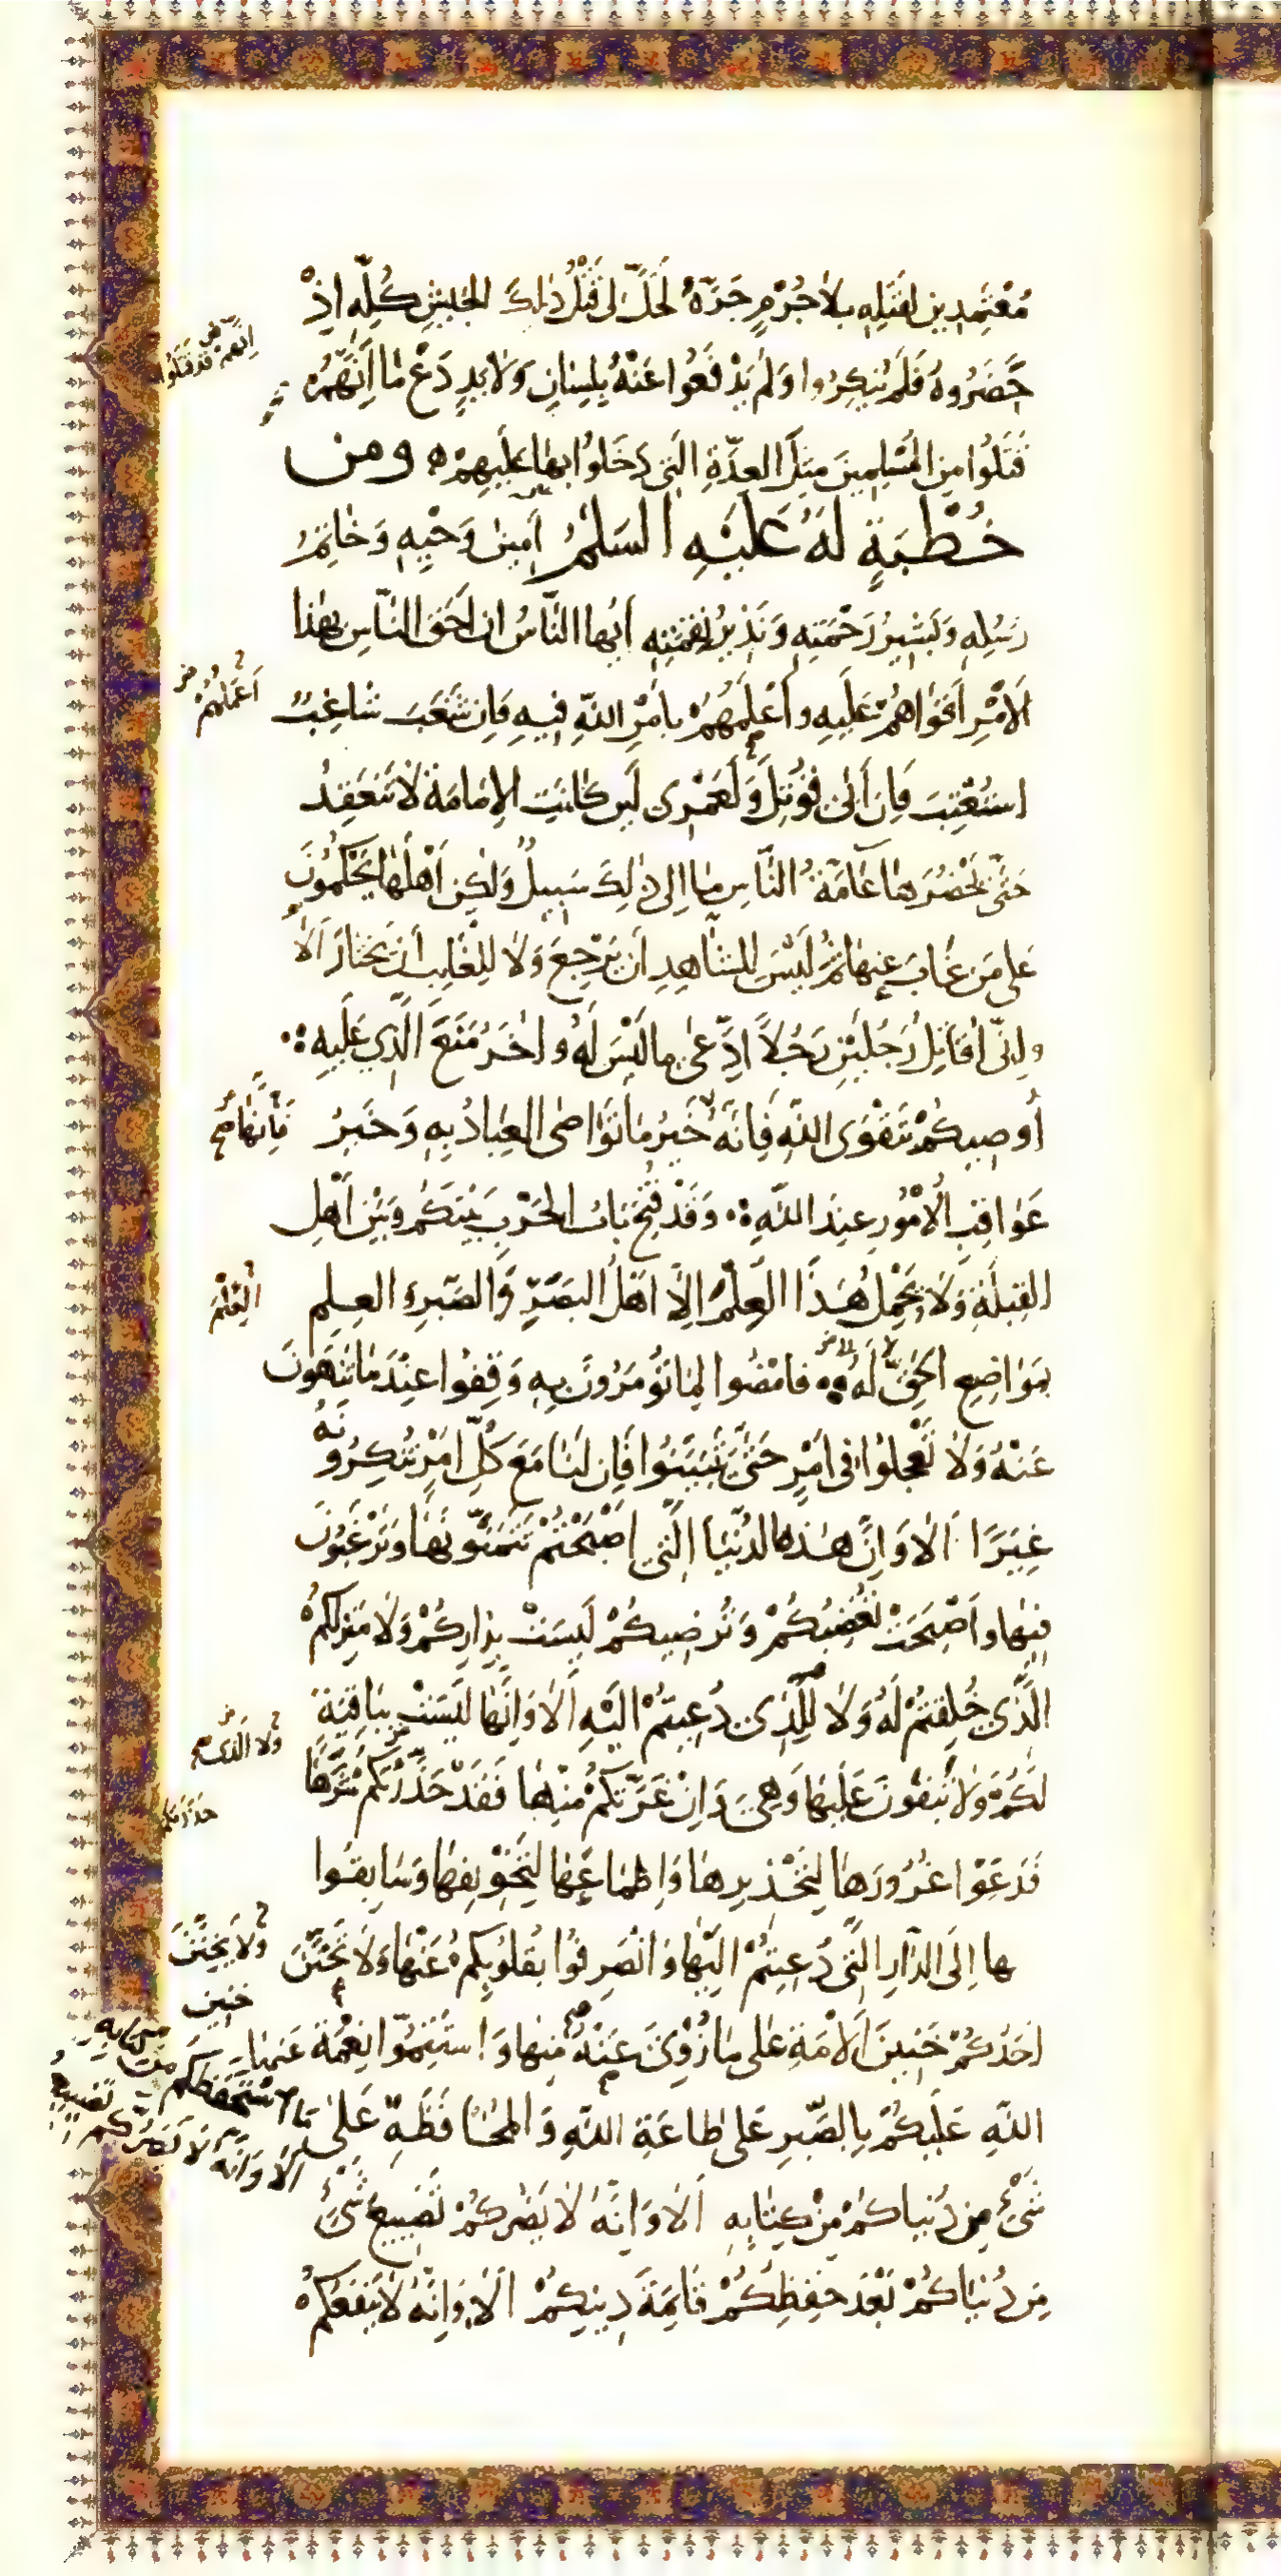 مُعْتَمِدِينَ لِقَتْلِهِ بِلَا جُرْمٍ جَرَّهُ لَحَلَّ لِي قَتْلُ ذٰلِكَ الْجَيْشِ كُلِّهِ اِذْ
حَضَرُوهُ فَلَمْ يُنْكِرُوا وَلَمْ يَدْفَعُوا عَنْهُ بِلِسَانٍ وَلَا بِيَدٍ دَعْ مٰا اَنَّهُمْ
اِنَّهُمْ قَدْ قَتَلُوا
قَتَلُوا مِنَ الْمُسْلِمِينَ مِثْلَ الْعِدَّةِ الَّتِي دَخَلُوا بِهَا عَلَيْهِمْ ومن
خُطْبَةٍ لَهُ عَلَيْهِ السَّلٰمُ اَمِينُ وَحْيِهِ وَخَاتِمُ
رُسُلِهِ وَبَشِيرُ رَحْمَتِهِ وَنَذِيرُ نِقْمَتِهِ اَيُّهَا النَّاسُ اِنَّ اَحَقَّ النَّاسِ بِهٰذَا
الْاَمْرِ اَقْوَاهُمْ عَلَيْهِ وَاَعْلَمُهُمْ بِاَمْرِ اللّٰهِ فِيهِ فَاِنْ شَغَبَ شَاغِبٌ
اَعْمَلُهُمْ
اسْتُعْتِبَ فَاِنْ اَبٰى قُوتِلَ وَلَعَمْرِي لَئِنْ كَانَتِ الْاِمَامَةُ لَا تَنْعَقِدُ
حَتّٰى تَحْضُرَهَا عَامَّةُ النَّاسِ مَا اِلٰى ذٰلِكَ سَبِيلٌ وَلٰكِنْ اَهْلُهَا يَحْكُمُونَ
عَلٰى مَنْ غَابَ عَنْهَا ثُمَّ لَيْسَ لِلشَّاهِدِ اَنْ يَرْجِعَ وَلَا لِلْغَايِبِ اَنْ يَخْتَارَ اَلَا
وَاِنِّي اُقَاتِلُ رَجُلَيْنِ رَجُلًا ادَّعٰى مَا لَيْسَ لَهُ وَاٰخَرَ مَنَعَ الَّذِي عَلَيْهِ
اُوصِيكُمْ بِتَقْوَى اللّٰهِ فَاِنَّهُ خَيْرُ مَا تَوَاصَى الْعِبَادُ بِهِ وَخَيْرُ
فَاِنَّهَا صح
عَوَاقِبِ الْاُمُورِ عِنْدَ اللّٰهِ وَقَدْ فُتِحَ بَابُ الْحَرْبِ بَيْنَكُمْ وَبَيْنَ اَهْلِ
الْقِبْلَةِ وَلَا يَحْمِلُ هٰذَا الْعِلْمَ اِلَّا اَهْلُ الْبَصَرِ وَالصَّبْرِ وَالْعِلْمِ
الْعَلَمَ
بِمَوَاضِعِ الْحَقِّ لَهُ فَامْضُوا لِمَا تُؤْمَرُونَ بِهِ وَقِفُوا عِنْدَ مَا تُنْهَوْنَ
عَنْهُ وَلَا تَعْجَلُوا فِي اَمْرٍ حَتّٰى تَتَبَيَّنُوا فَاِنَّ لَنَا مَعَ كُلِّ اَمْرٍ تُنْكِرُونَهُ
غِيَرًا اَلَا وَاِنَّ هٰذِهِ الدُّنْيَا الَّتِي اَصْبَحْتُمْ تَتَمَنَّوْنَهَا وَتَرْغَبُونَ
فِيهَا وَاَصْبَحَتْ تُغْضِبُكُمْ وَتُرْضِيكُمْ لَيْسَتْ بِدَارِكُمْ وَلَا مَنْزِلِكُمُ
الَّذِي خُلِقْتُمْ لَهُ وَلَا لِلَّذِي دُعِيتُمْ اِلَيْهِ اَلَا وَاِنَّهَا لَيْسَتْ بِبَاقِيَةٍ
وَلَا الَّذِي
لَكُمْ وَلَا تَبْقَوْنَ عَلَيْهَا وَهِيَ وَاِنْ غَرَّتْكُمْ مِنْهَا فَقَدْ حَذَّرَتْكُمْ شَرَّهَا
حَذَّرَتْكُمْ
فَدَعُوا غُرُورَهَا لِتَحْذِيرِهَا وَاِطْمَاعَهَا لِتَخْوِيفِهَا وَسَابِقُوا
هَا اِلَى الدَّارِ الَّتِي دُعِيتُمْ اِلَيْهَا وَانْصَرِفُوا بِقُلُوبِكُمْ عَنْهَا وَلَا يَحِنَّنَّ
وَلَا يَخِنَّنَّ
خنين
اَحَدُكُمْ حَنِينَ الْاَمَةِ عَلٰى مَا زُوِيَ عَنْهُ مِنْهَا وَاسْتَتِمُّوا نِعْمَةَ
اللّٰهِ عَلَيْكُمْ بِالصَّبْرِ عَلٰى طَاعَةِ اللّٰهِ وَالْمُحَافَظَةِ عَلٰى
مَا اسْتَحْفَظَكُمْ مِنْ كِتَابِهِ
اَلَا وَاِنَّهُ لَا يَضُرُّكُمْ تَضْيِيعُ
شَيْءٍ مِنْ دُنْيَاكُمْ مِنْ كِتَابِهِ اَلَا وَاِنَّهُ لَا يَضُرُّكُمْ تَضْيِيعُ شَيْءٍ
مِنْ دُنْيَاكُمْ بَعْدَ حِفْظِكُمْ قَائِمَةَ دِينِكُمْ اَلَا وَاِنَّهُ لَا يَنْفَعُكُمْ